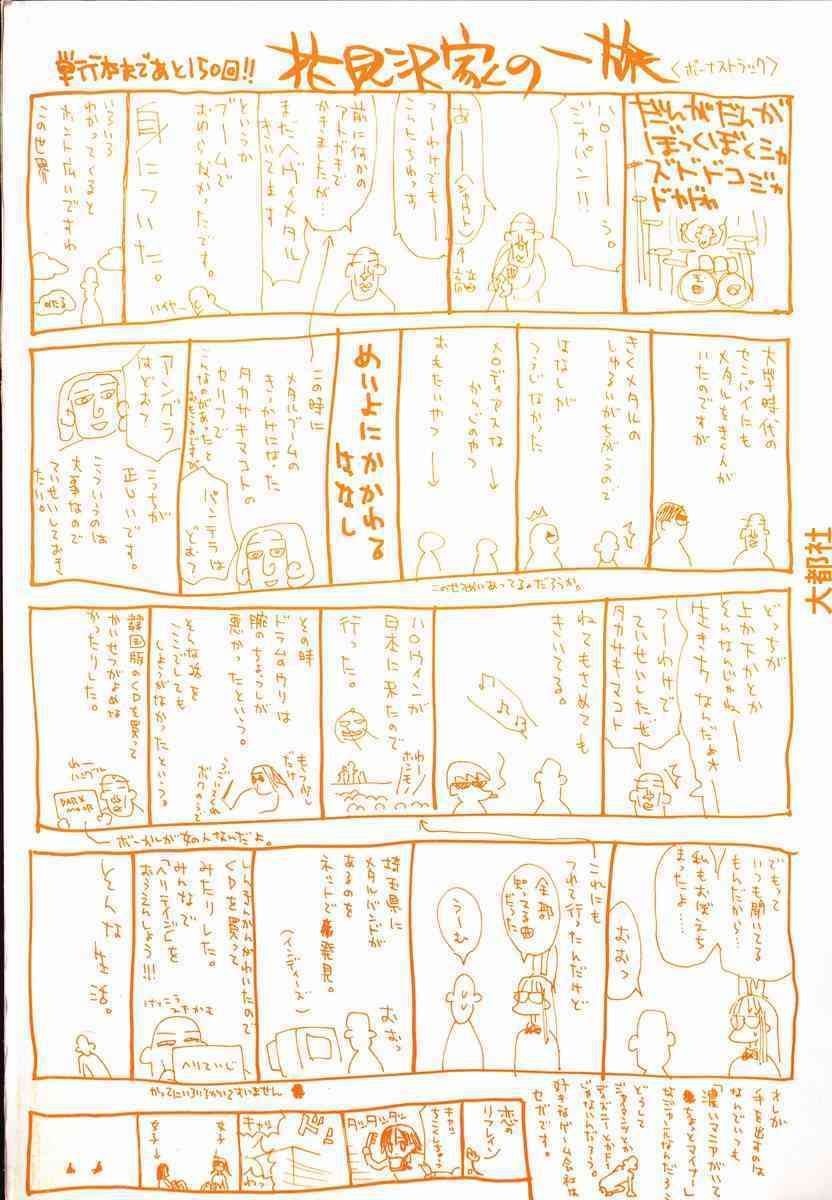 単行本まであと150回!!
花見沢家の一旅
<ボーナストラック>
だんがだんが
ぼっくぼくジャ
ズドドコジャ
ドがが
ハローーう。
ジャパン!!
あーー
(シャウト)
つーわけでもー
こんちわっす
前に何かの
アトガキで
かきましたが…
まだヘヴィメタル
きいてます
というか
ブームで
おわらなかったです。
身についた。
ハイヤー
いろいろ
わかってくると
ホント広いですね
この世界
のたる
大学時代の
センパイにも
メタルをきく人が
いたのですが
きくメタルの
しゅるいがちがうので
はなしが
つうじなかった
メロディアスな
からごのやつ
おもたいやつ
めいよにかかわる
はなし
この時に
メタルブームの
きっかけになった
タカサキマコトの
セリフで
こんなのがあったと
おもうのですが
パンテラは
どお?
アングラ
はどお?
こっちが
正しいです。
こういうのは
大事なので
ていせいしておき
たい。
このせつめいあってるのだろうか。
どっちが
上か下かとか
そんなんじゃねー
生き方なんだよ
つーわけで
ていせいしたぜ
タカサキマコト
ねてもさめても
きいてる。
ハロウィンが
日本に来たので
行った。
わー
ホンモノ
その時
ドラムのウリは
腕のちょうしが
悪かったという。
そんな話を
ここでしても
しょうがなかったという。
韓国版のCDを買って
かいせつがよめな
かったりした。
わー
ハングル
DARK
MOOR
ボーカルが女の人なんだよ。
でもって
いつも聞いてる
もんだから…
私もおぼえち
まったよ……
おおっ
これにも
つれて行ったんだけど
全部
知ってる曲
だった
うーむ
埼玉県に
メタルバンドが
あるのを
ネットで発見。
(インディーズ)
おおっ
しんきんかんがわいたので
CDを買って
みたりした。
みんなで
「ヘリテイジ」を
おうえんしよう!!!
けっこう
スキかも
へりていじ
そんな生活。
かってにいろいろかいてすいません
オレが
手を出すのは
なんでいつも
「濃いマニアがいて
ちょっとマイナー」
なモンなんだろう
どうして
じゃないんだろう。
好きなゲーム会社は
セガです。
恋の
リフレイン
キャッ
ちこくしちゃう
ダッダッダッ
ドン
キャッ
わっ
女子→
女子→
大都社